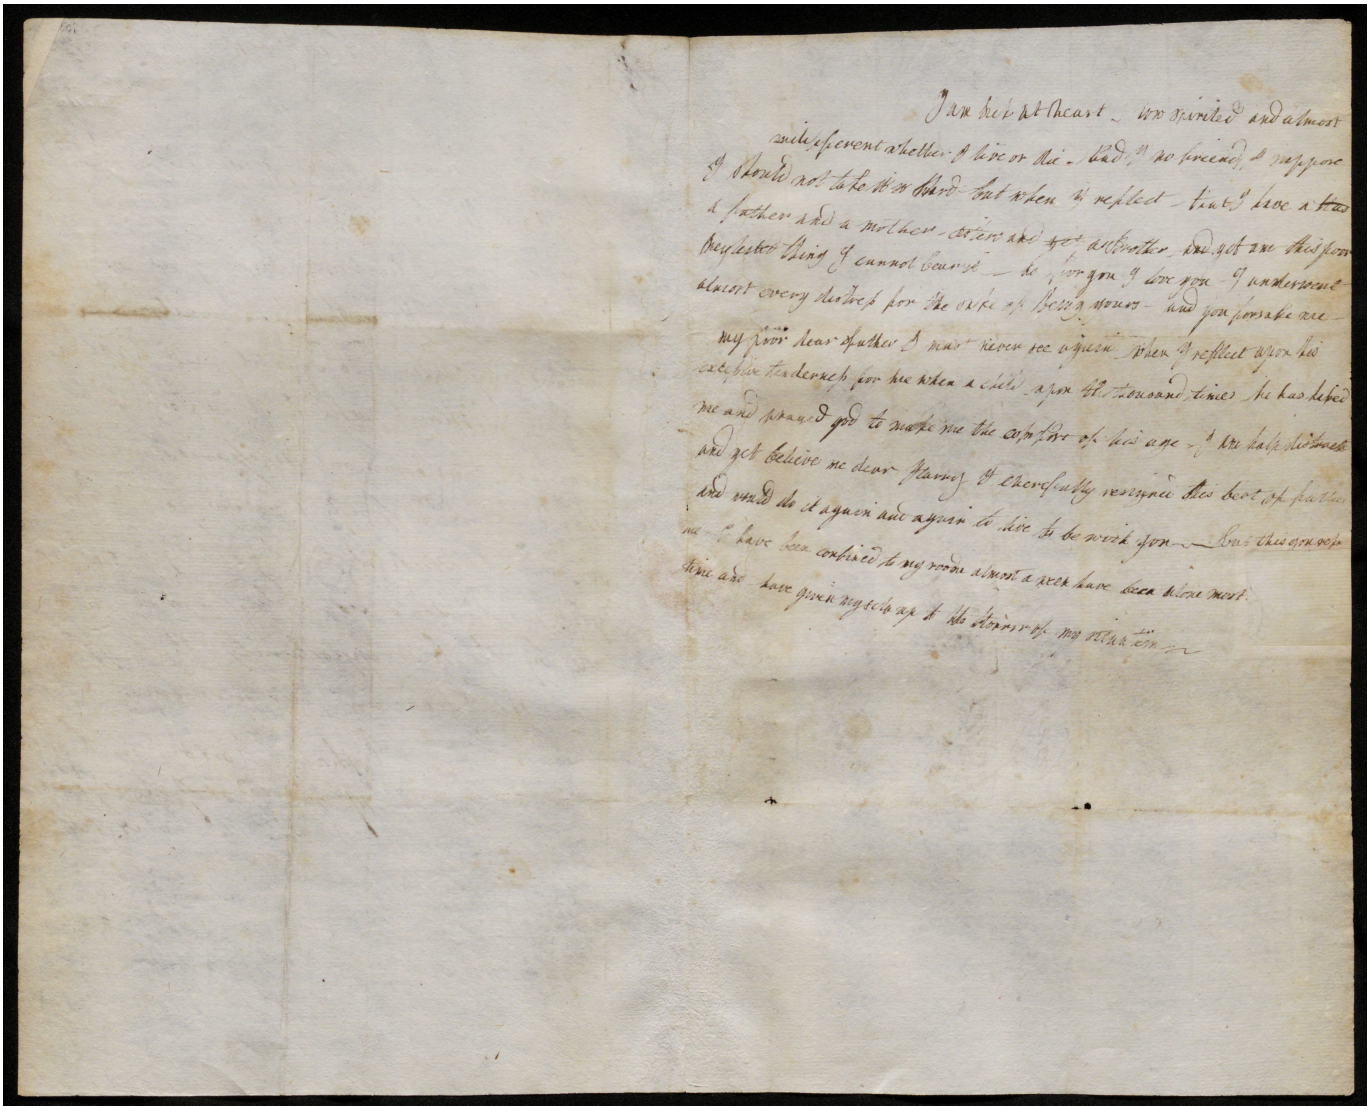 I am sick at heart – low spirited and almost
indifferent whether I live or die – Had I no friends, I suppose
I should not take it so Hard but when I reflect – that I have a
a father and a mother – sisters and yet a Brother – and yet am this poor
neglected thing I cannot bear it – I love you – I underwent
almost every distress for the sake of Being yours – and you forsake me –
my poor dear father I must never see again when I reflect upon his
excessive tenderness for me when a child – upon the thousand times he has kissed
me and prayed god to make me the comfort of his age – I am half distracted
and yet believe me dear Harry I cherefully resigned this best of fathers
and would do it again and again to live to be with you – but this you refuse
me – I have been confined to my room almost a week have been alone most
time and have given myself up to the Horror of my situation